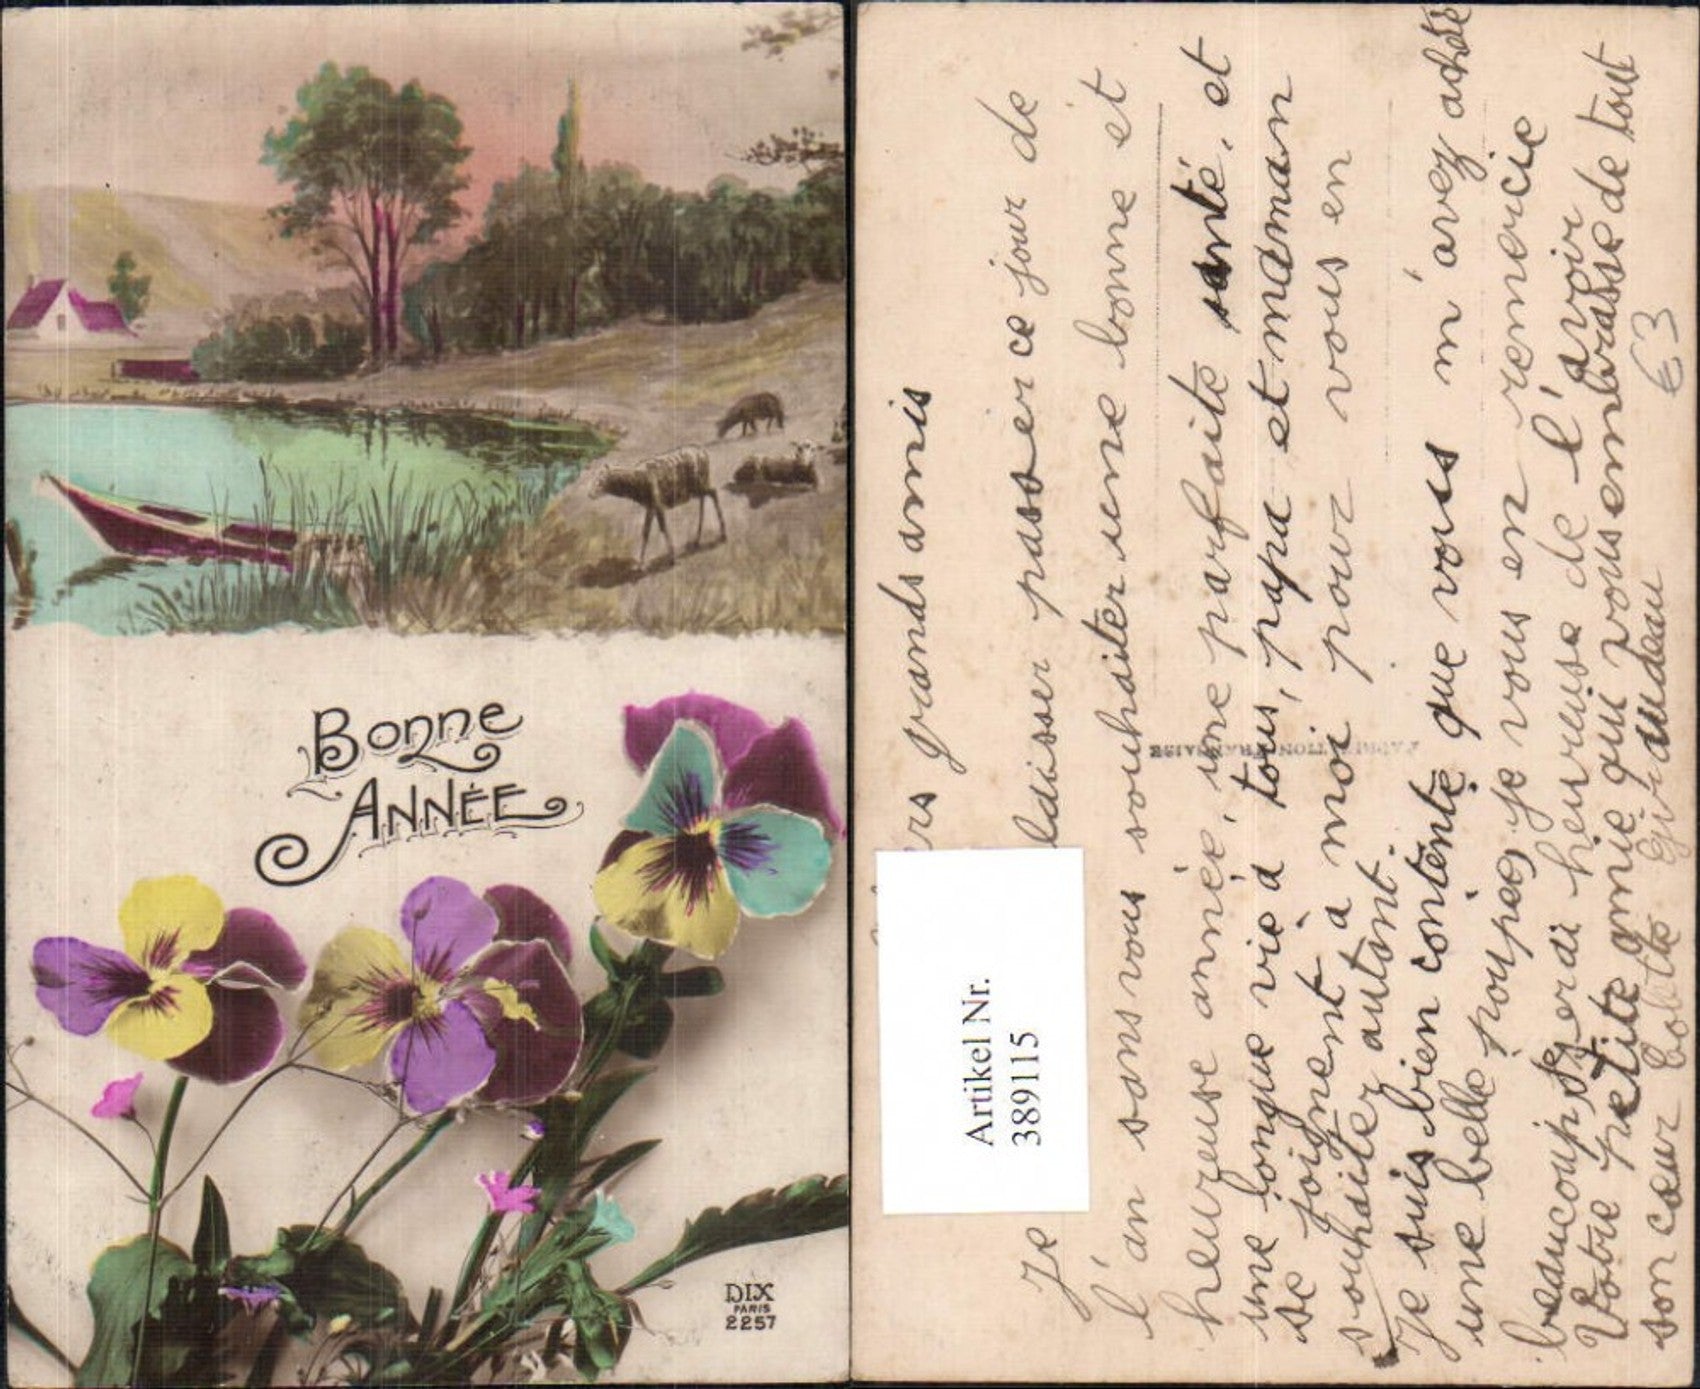 Bonne
Année
DIX
PARIS
2257
grands amis
Je laisser passer ce jour de
l'an sans vous souhaiter une bonne et
heureuse année, une parfaite santé, et
une longue vie à tous, papa et maman
se joignent à moi pour vous en
souhaiter autant.
Je suis bien contente que vous m'avez acheté
une belle poupée, je vous en remercie
beaucoup, serai heureuse de l'avoir
Votre petite amie qui vous embrasse de tout
son cœur
€3
FABRICATION FRANÇAISE
Artikel Nr.
3891115